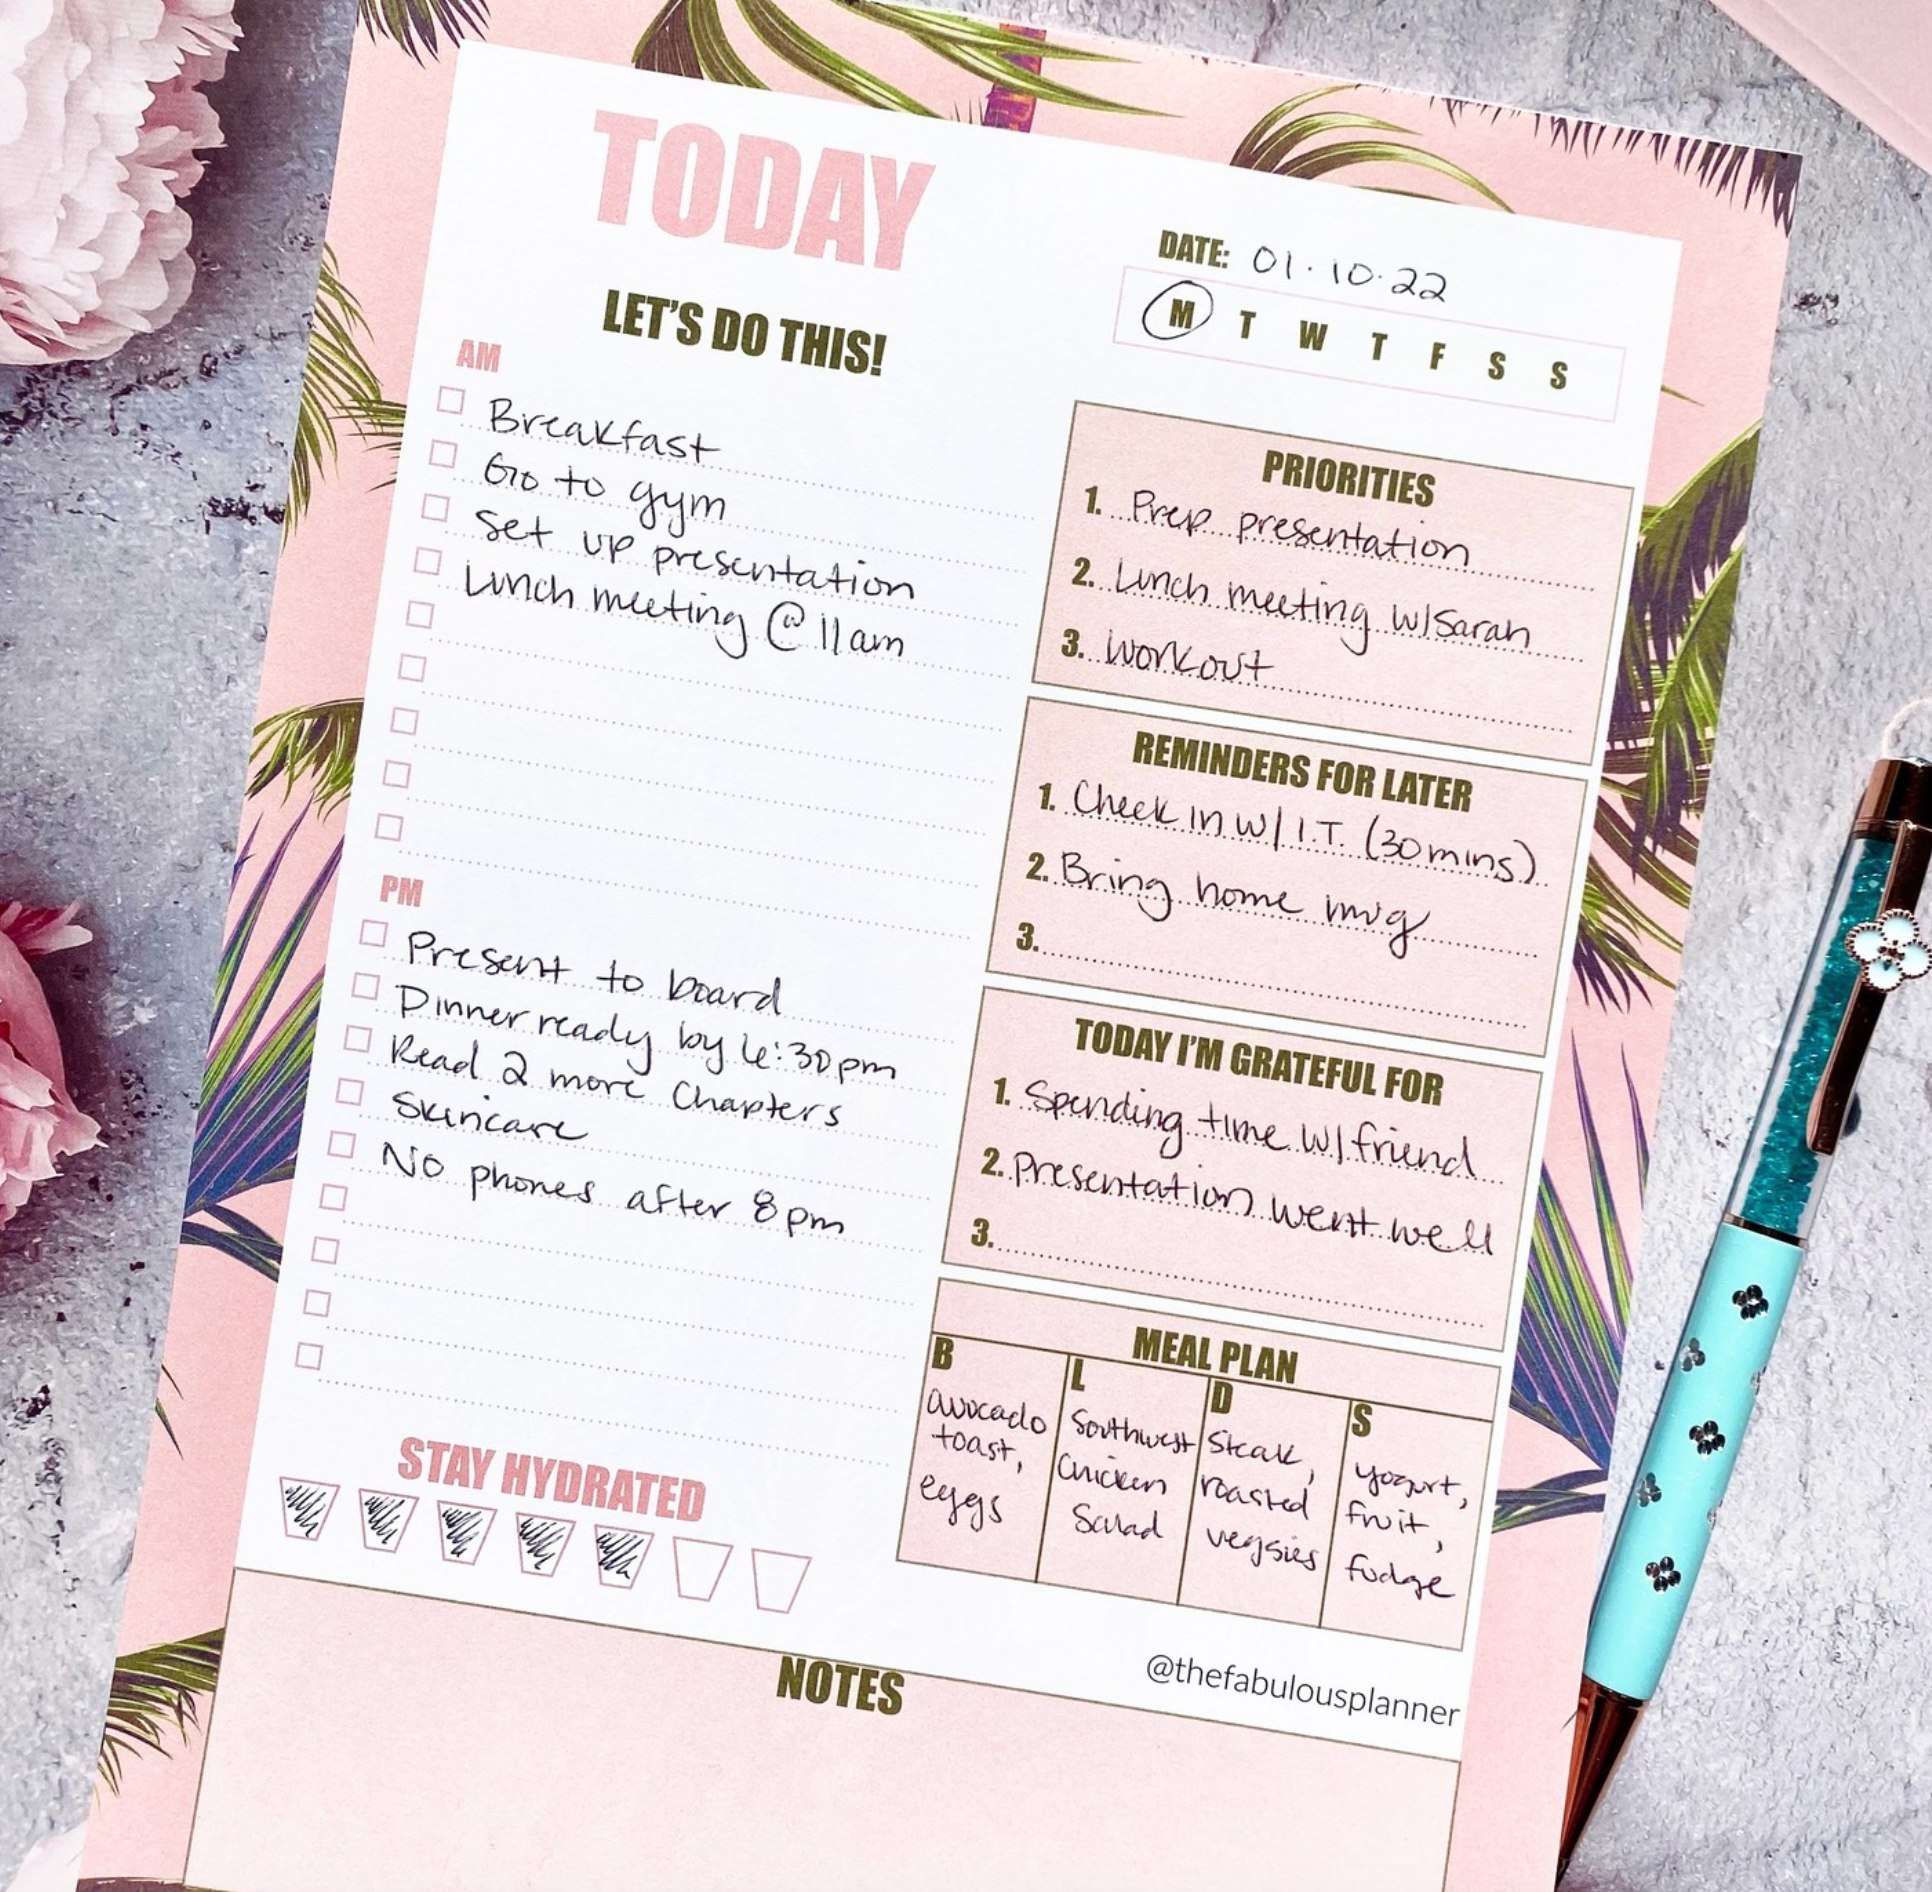 TODAY
LET'S DO THIS!
DATE: 01.10.22
M T W T F S S
AM
Breakfast
Go to gym
Set up presentation
Lunch meeting @ 11am
PM
Present to board
Dinner ready by 6:30pm
Read 2 more Chapters
Skincare
No phones after 8pm
STAY HYDRATED
PRIORITIES
1. Prep presentation
2. Lunch meeting w/Sarah
3. Workout
REMINDERS FOR LATER
1. Check in w/ I.T. (30 mins)
2. Bring home mug
3.
TODAY I'M GRATEFUL FOR
1. Spending time w/ friend
2. Presentation went well
3.
MEAL PLAN
B
avocado
toast,
eggs
L
Southwest
Chicken
Salad
D
Steak,
roasted
veggies
S
yogurt,
fruit,
fudge
@thefabulousplanner
NOTES